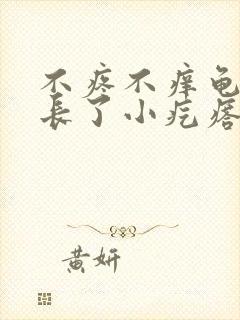 不疼不痒龟
长了小疙瘩
黄妍